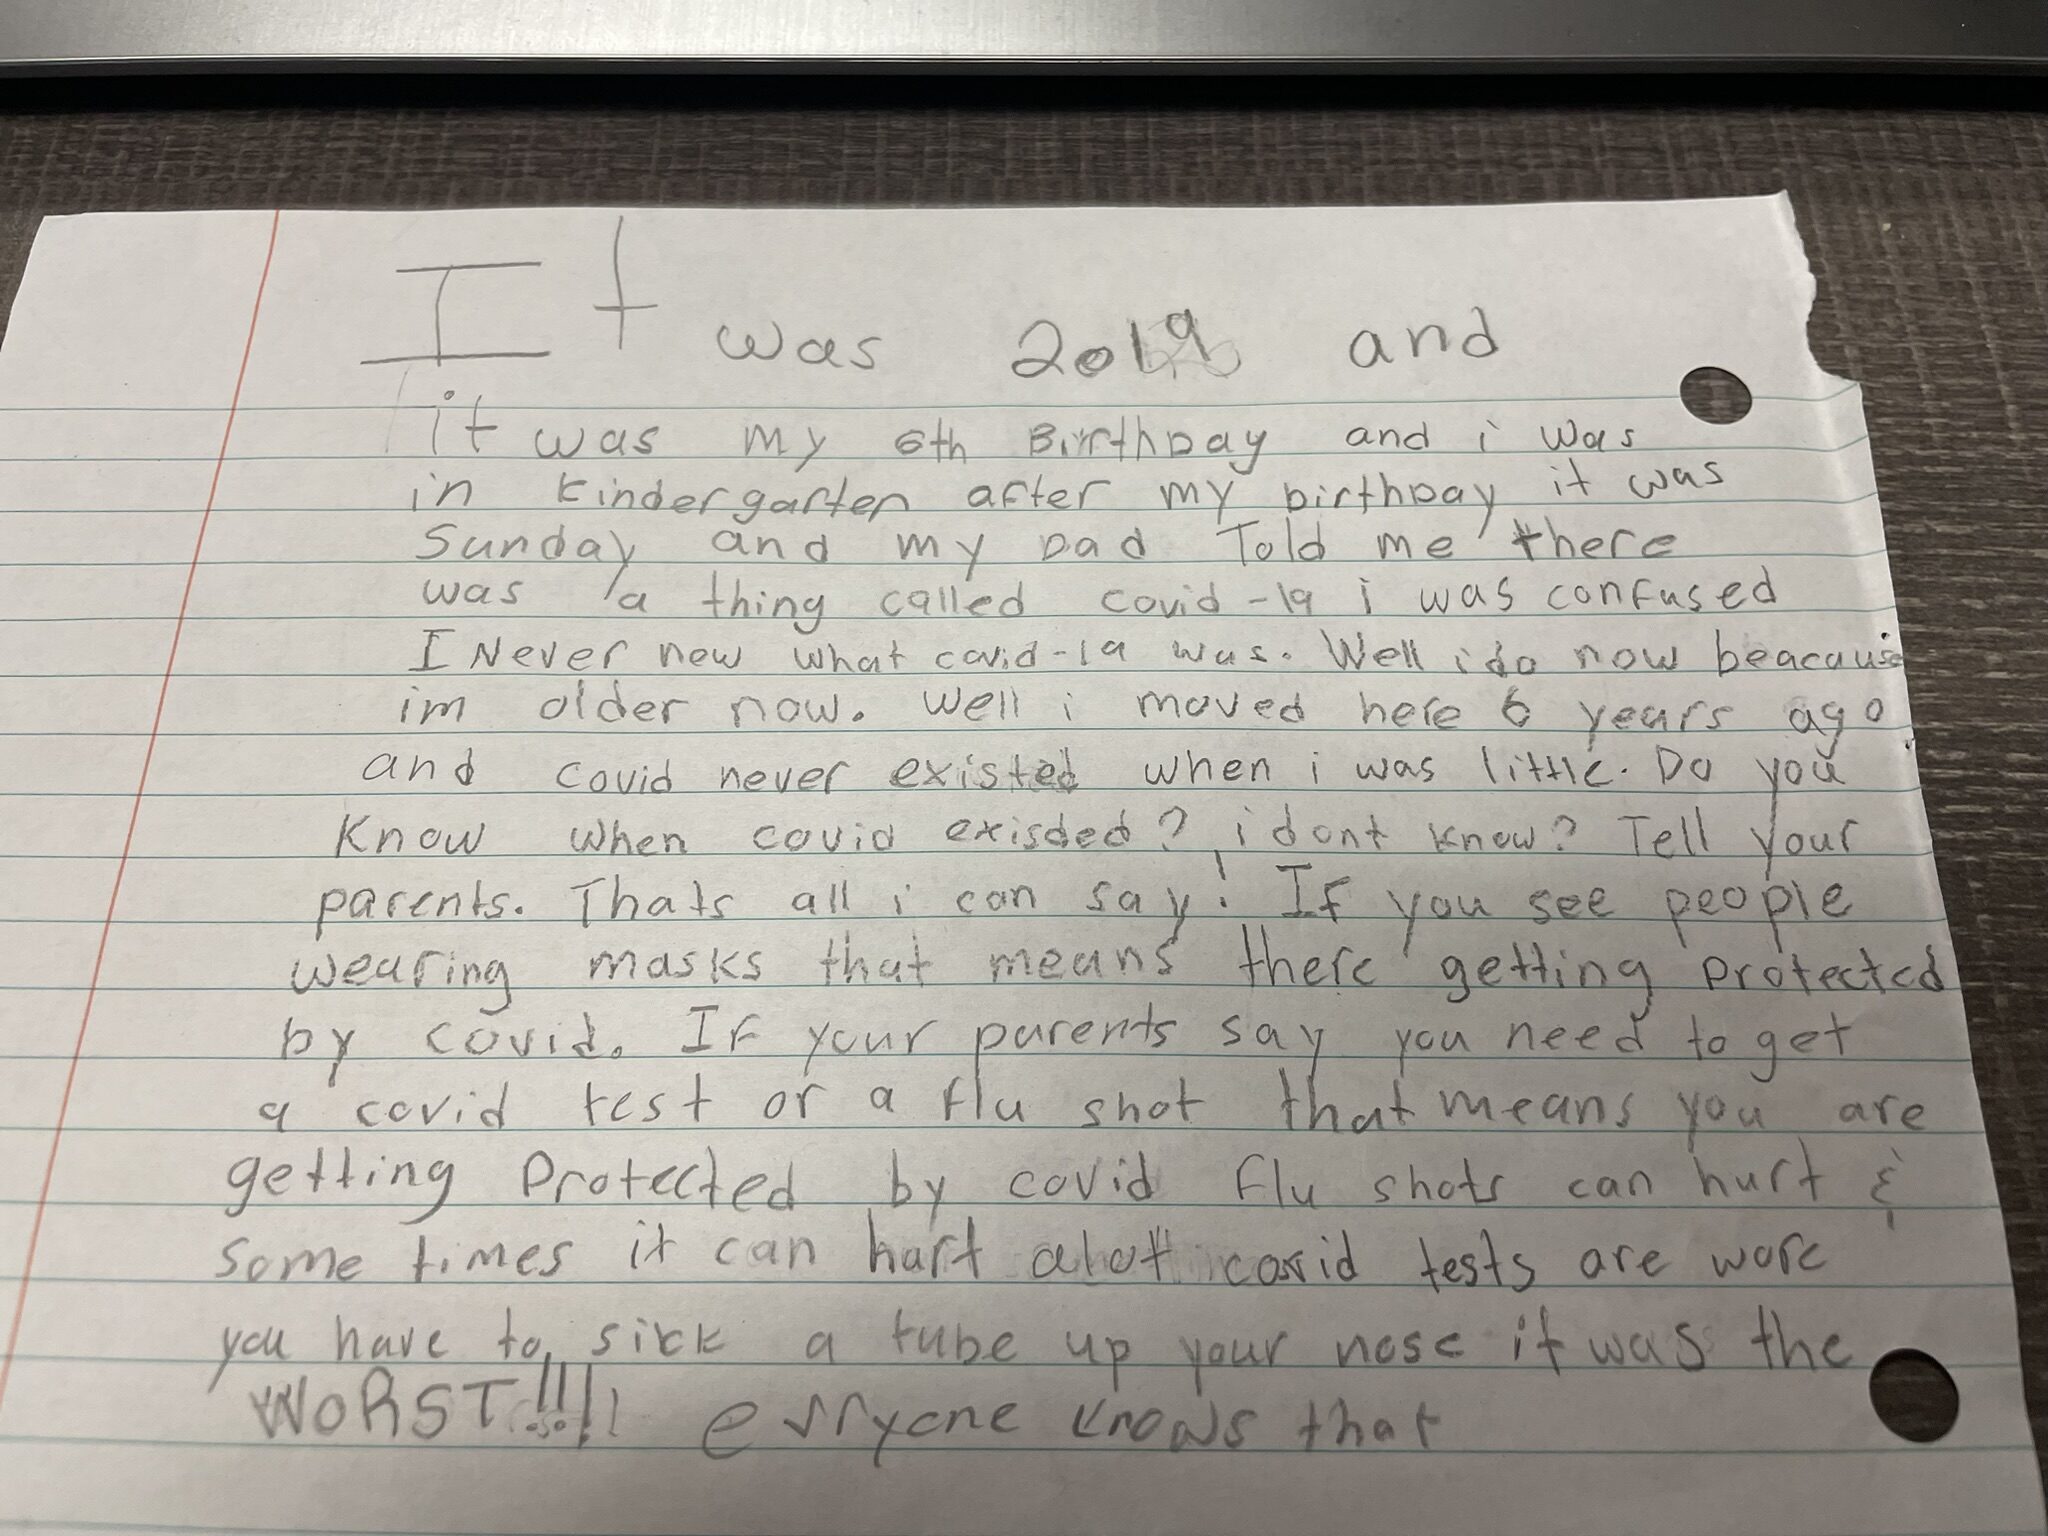 It was 2019 and
it was my 6th BirthDay and i was
in kindergarten after my birthDay it was
Sunday and my Dad Told me there
was a thing called covid-19 i was confused
I Never new what covid-19 was. Well i do now beacause
im older now. Well i moved here 6 years ago
and covid never existed when i was little. Do you
Know when covid exisded? i dont know? Tell your
parents. Thats all i can say! If you see people
wearing masks that means there getting protected
by covid. If your parents say you need to get
a covid test or a flu shot that means you are
getting Protected by covid flu shots can hurt &
some times it can hurt alot covid tests are wore
you have to sick a tube up your nose it was the
WORST!!!! evryone knows that